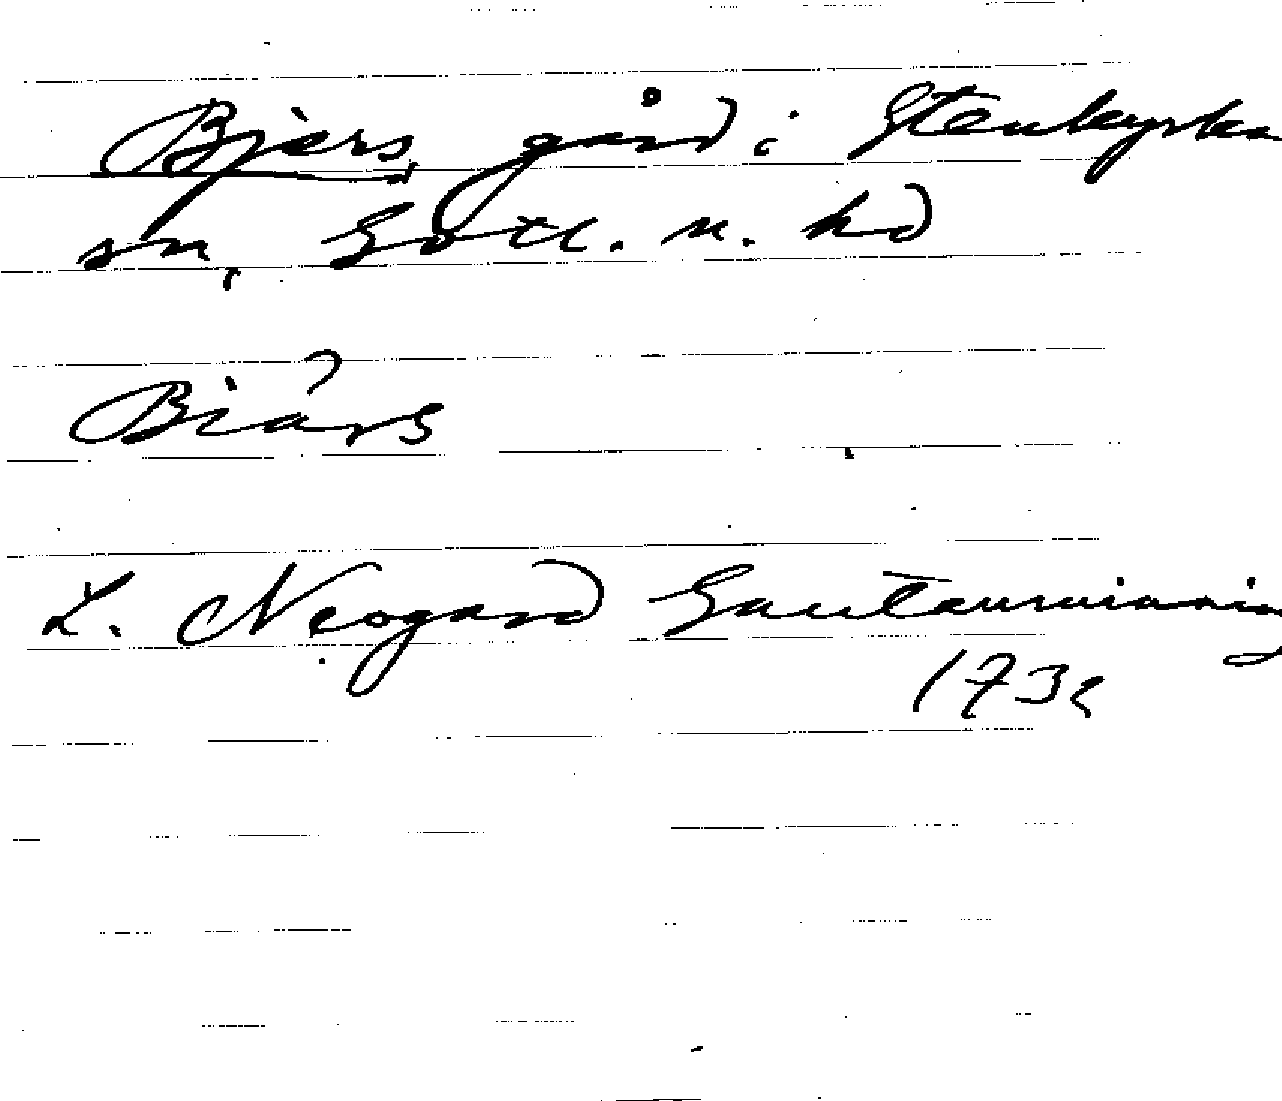 Bjers, gård i Stenkyrka
sn, Gotl. n. hd
Biärs
L. Neogard Gautauminning
1732